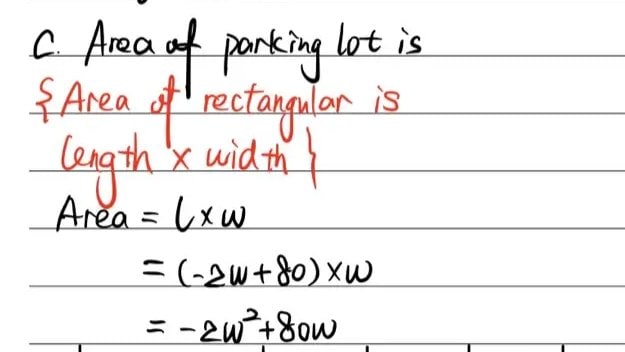 C. Area of parking lot is
{Area of rectangular is
length x width}
Area = l x w
= (-2w+80) x w
= -2w²+80w